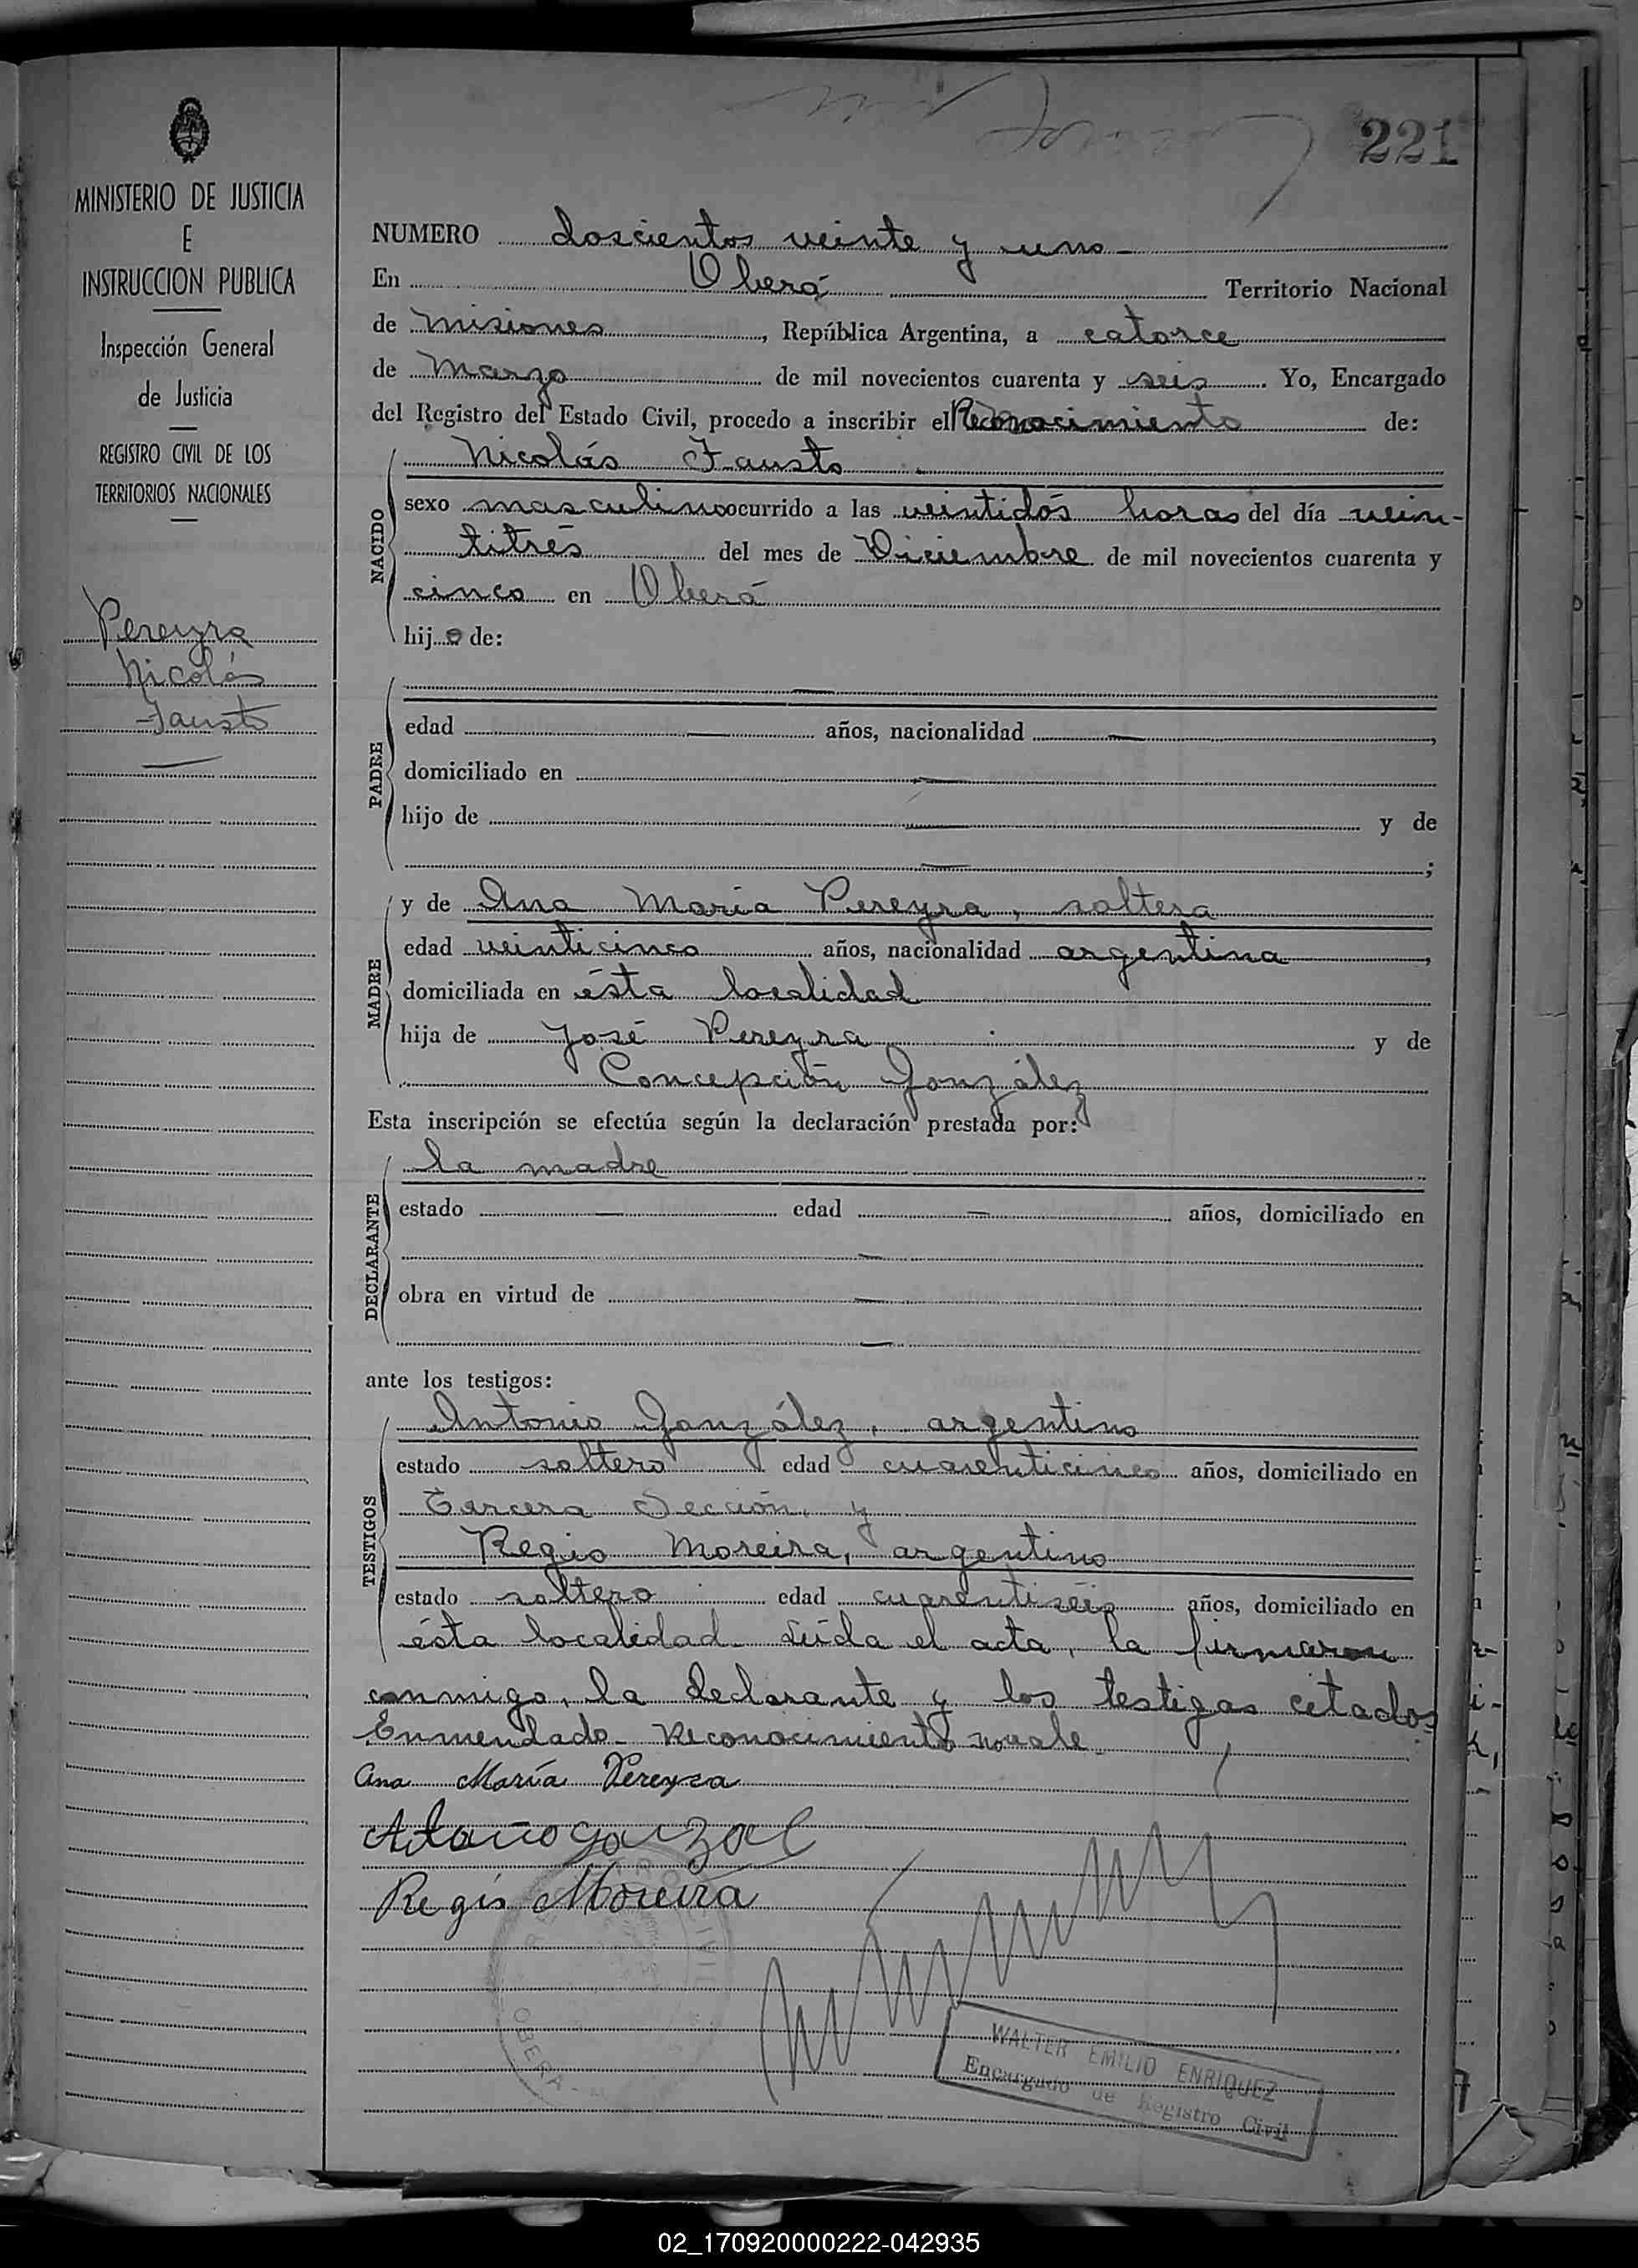 221
MINISTERIO DE JUSTICIA
E
INSTRUCCION PUBLICA
Inspección General
de Justicia
REGISTRO CIVIL DE LOS
TERRITORIOS NACIONALES
Pereyra
Nicolás
Fausto
NUMERO doscientos veinte y uno
En Oberá Territorio Nacional
de Misiones, República Argentina, a catorce
de Marzo de mil novecientos cuarenta y seis. Yo, Encargado
del Registro del Estado Civil, procedo a inscribir el Reconocimiento de:
NACIDO
Nicolás Fausto
sexo masculino ocurrido a las veintidós horas del día vein-
titrés del mes de Diciembre de mil novecientos cuarenta y
cinco en Oberá
hijo de:
PADRE
edad años, nacionalidad ,
domiciliado en
hijo de y de
;
MADRE
y de Ana María Pereyra, soltera
edad veinticinco años, nacionalidad argentina,
domiciliada en ésta localidad
hija de José Pereyra y de
Concepción González
Esta inscripción se efectúa según la declaración prestada por:
DECLARANTE
la madre
estado edad años, domiciliado en
obra en virtud de
ante los testigos:
TESTIGOS
Antonio González, argentino
estado soltero edad cuarenticinco años, domiciliado en
Tercera Sección, y
Regio Moreira, argentino
estado soltero edad cuarentiséis años, domiciliado en
ésta localidad. Leída el acta, la firmaron
conmigo, la declarante y los testigos citados
Enmendado- Reconocimiento- vale
Ana María Pereyra
Regis Moreira
OBERA
WALTER EMILIO ENRIQUEZ
Encargado de Registro Civil
02_170920000222-042935